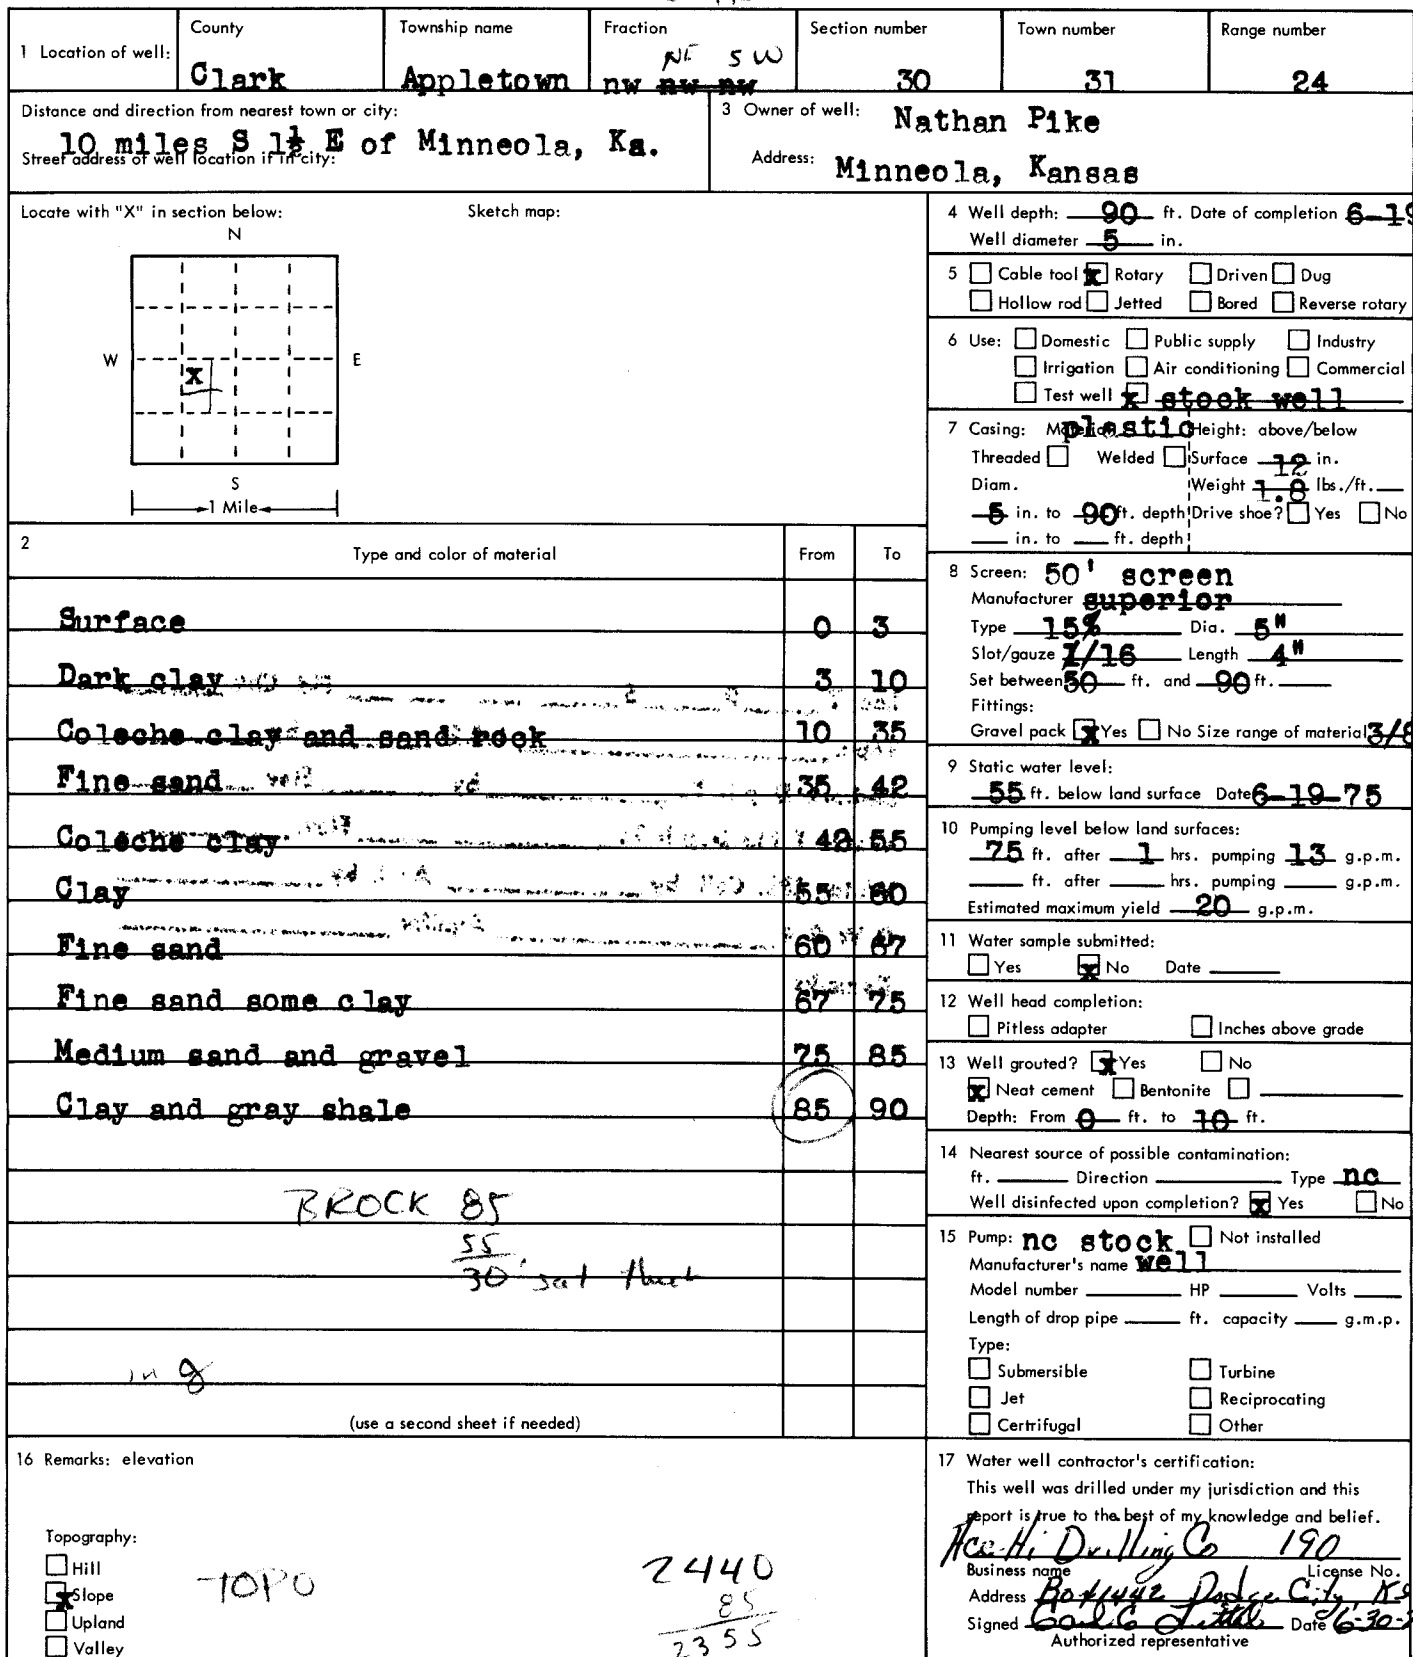 1 Location of well:
County
Clark
Township name
Appletown
Fraction
NE SW
nw nw nw
Section number
30
Town number
31
Range number
24
Distance and direction from nearest town or city:
10 miles S 1½ E of Minneola, Ka.
Street address of well location if in city:
3 Owner of well: Nathan Pike
Address: Minneola, Kansas
Locate with "X" in section below:
Sketch map:
N
W
X
E
S
1 Mile
2
Type and color of material
From
To
Surface 0 3
Dark clay 3 10
Coleche clay and sand rock 10 35
Fine sand 35 42
Coleche clay 42 55
Clay 55 60
Fine sand 60 67
Fine sand some clay 67 75
Medium sand and gravel 75 85
Clay and gray shale 85 90
BROCK 85
55
30' sat
(use a second sheet if needed)
4 Well depth: 90 ft. Date of completion 6-19
Well diameter 5 in.
5 Cable tool x Rotary Driven Dug
Hollow rod Jetted Bored Reverse rotary
6 Use: Domestic Public supply Industry
Irrigation Air conditioning Commercial
Test well x stock well
7 Casing: Material plastic Height: above/below
Threaded Welded Surface 12 in.
Diam. Weight 1.8 lbs./ft.
5 in. to 90 ft. depth Drive shoe? Yes No
in. to ft. depth
8 Screen: 50' screen
Manufacturer superior
Type 15% Dia. 5"
Slot/gauze 1/16 Length 4"
Set between 50 ft. and 90 ft.
Fittings:
Gravel pack x Yes No Size range of material 3/8
9 Static water level:
55 ft. below land surface Date 6-19-75
10 Pumping level below land surfaces:
75 ft. after 1 hrs. pumping 13 g.p.m.
ft. after hrs. pumping g.p.m.
Estimated maximum yield 20 g.p.m.
11 Water sample submitted:
Yes x No Date
12 Well head completion:
Pitless adapter Inches above grade
13 Well grouted? x Yes No
x Neat cement Bentonite
Depth: From 0 ft. to 10 ft.
14 Nearest source of possible contamination:
ft. Direction Type nc
Well disinfected upon completion? x Yes No
15 Pump: nc stock Not installed
Manufacturer's name well
Model number HP Volts
Length of drop pipe ft. capacity g.m.p.
Type:
Submersible Turbine
Jet Reciprocating
Certrifugal Other
16 Remarks: elevation
Topography:
Hill
x Slope
Upland
Valley
TOPO
2440
85
2355
17 Water well contractor's certification:
This well was drilled under my jurisdiction and this
report is true to the best of my knowledge and belief.
Ace-Hi Drilling Co 190
Business name License No.
Address Box 1442 Dodge City, KS
Signed Date 6-30-
Authorized representative